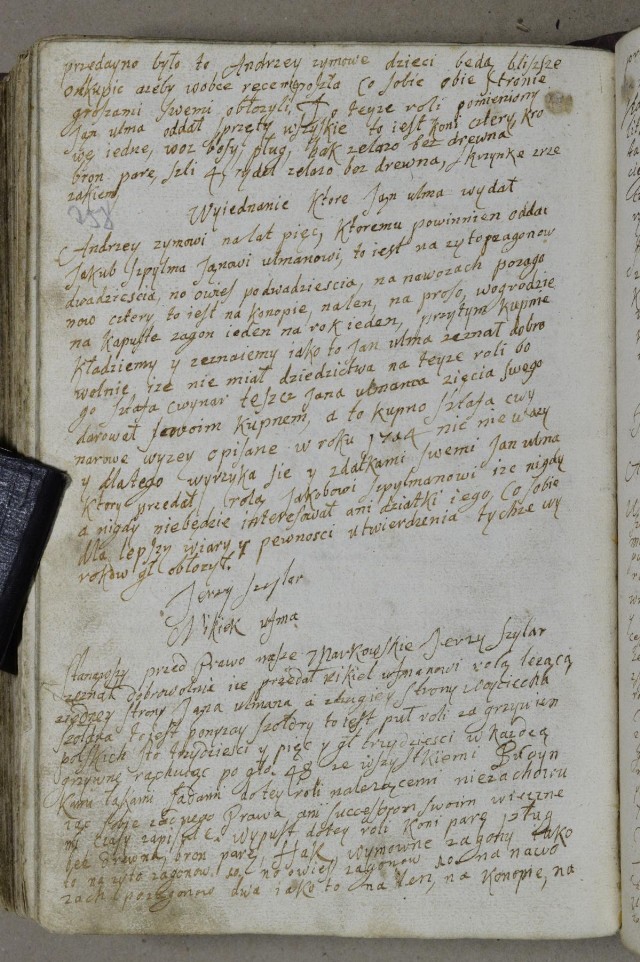 przedayno było to Andrzey zymowe dzieci będą bliższe
onkupic azeby wobce ręce nieposzła Co sobie obie stronie
groszami swemi obłozyli, #o teyze roli pomieniony
Jan ulma oddał przęty wszyskie to iest koni cztery, kro
wę iednę, woz bosy, pług, hak zelazo bez drewna
bron parę, szli 4, rydel zelazo bez drewna, skrzynkę zrze
zakiem,
258
Wyiednanie Ktore Jan ulma wydał
Andrzey zymowi na lat pięc, Ktoremu powinnien oddac
Jakub Szpylma Janowi ulmanowi, to iest na zyto zagonow
dwadziescia, no owies podwadziescia, na nawozach pozago
now cztery to iest na konopie, nalen, na proso, wogrodzie
na kapustę zagon ieden na rok ieden, przytym kupnie
Kładziemy y zeznaiemy iako to Jan ulma zeznał dobro
wolnie ize nie miał dziedzictwa na teyze roli bo
go szafa cwynar tescz Jana ulmana zięcia swego
darował swoim kupnem, a to kupno szłafa cwy
narowe wyzey opisane w roku 1724 nic nie wazy
y dlatego wyrzyka się y zdatkami swemi Jan ulma
Ktory przedał rolą Jakobowi szpylmanowi ize nigdy
a nigdy niebedzie interesował ani działki iego, Co sobie
dla lepszy wiary y pewnosci utwierdzenia tychze wy
rokow gł obłozył.
Jerzy Szylar
Nikiek ulma
Stanąwszy przed Prawo nasze Markowskie Jerzy Szylar
zeznał dobrowolnie ize przedał nikiel ulmanowi rolą lezącą
ziedney strony Jana ulmana a zdrugiey strony woyciecha
szołdra to iest ponyzey szołdry to iest puł roli za grzywien
polskich sto trzydziesci y pięc y gł trzydziesci w Kazdą
grzywnę rachuiąc po gło. 48 ze wszystkiemi Budyn
Kami łąkami sadami do tey roli nalezącemi niezachowu
iąc sobie zadnego Prawa ani successorom swoim wieczne
mi czasy zapisał. wypust do tey roli Koni parę pług
bez drewna, bron parę, Hak, wymowne zagony iako
to na zyto zagonow 10, no owies zagonow 10 na nawo
zach pozagonow dwa iako to na len, na Konopie, na